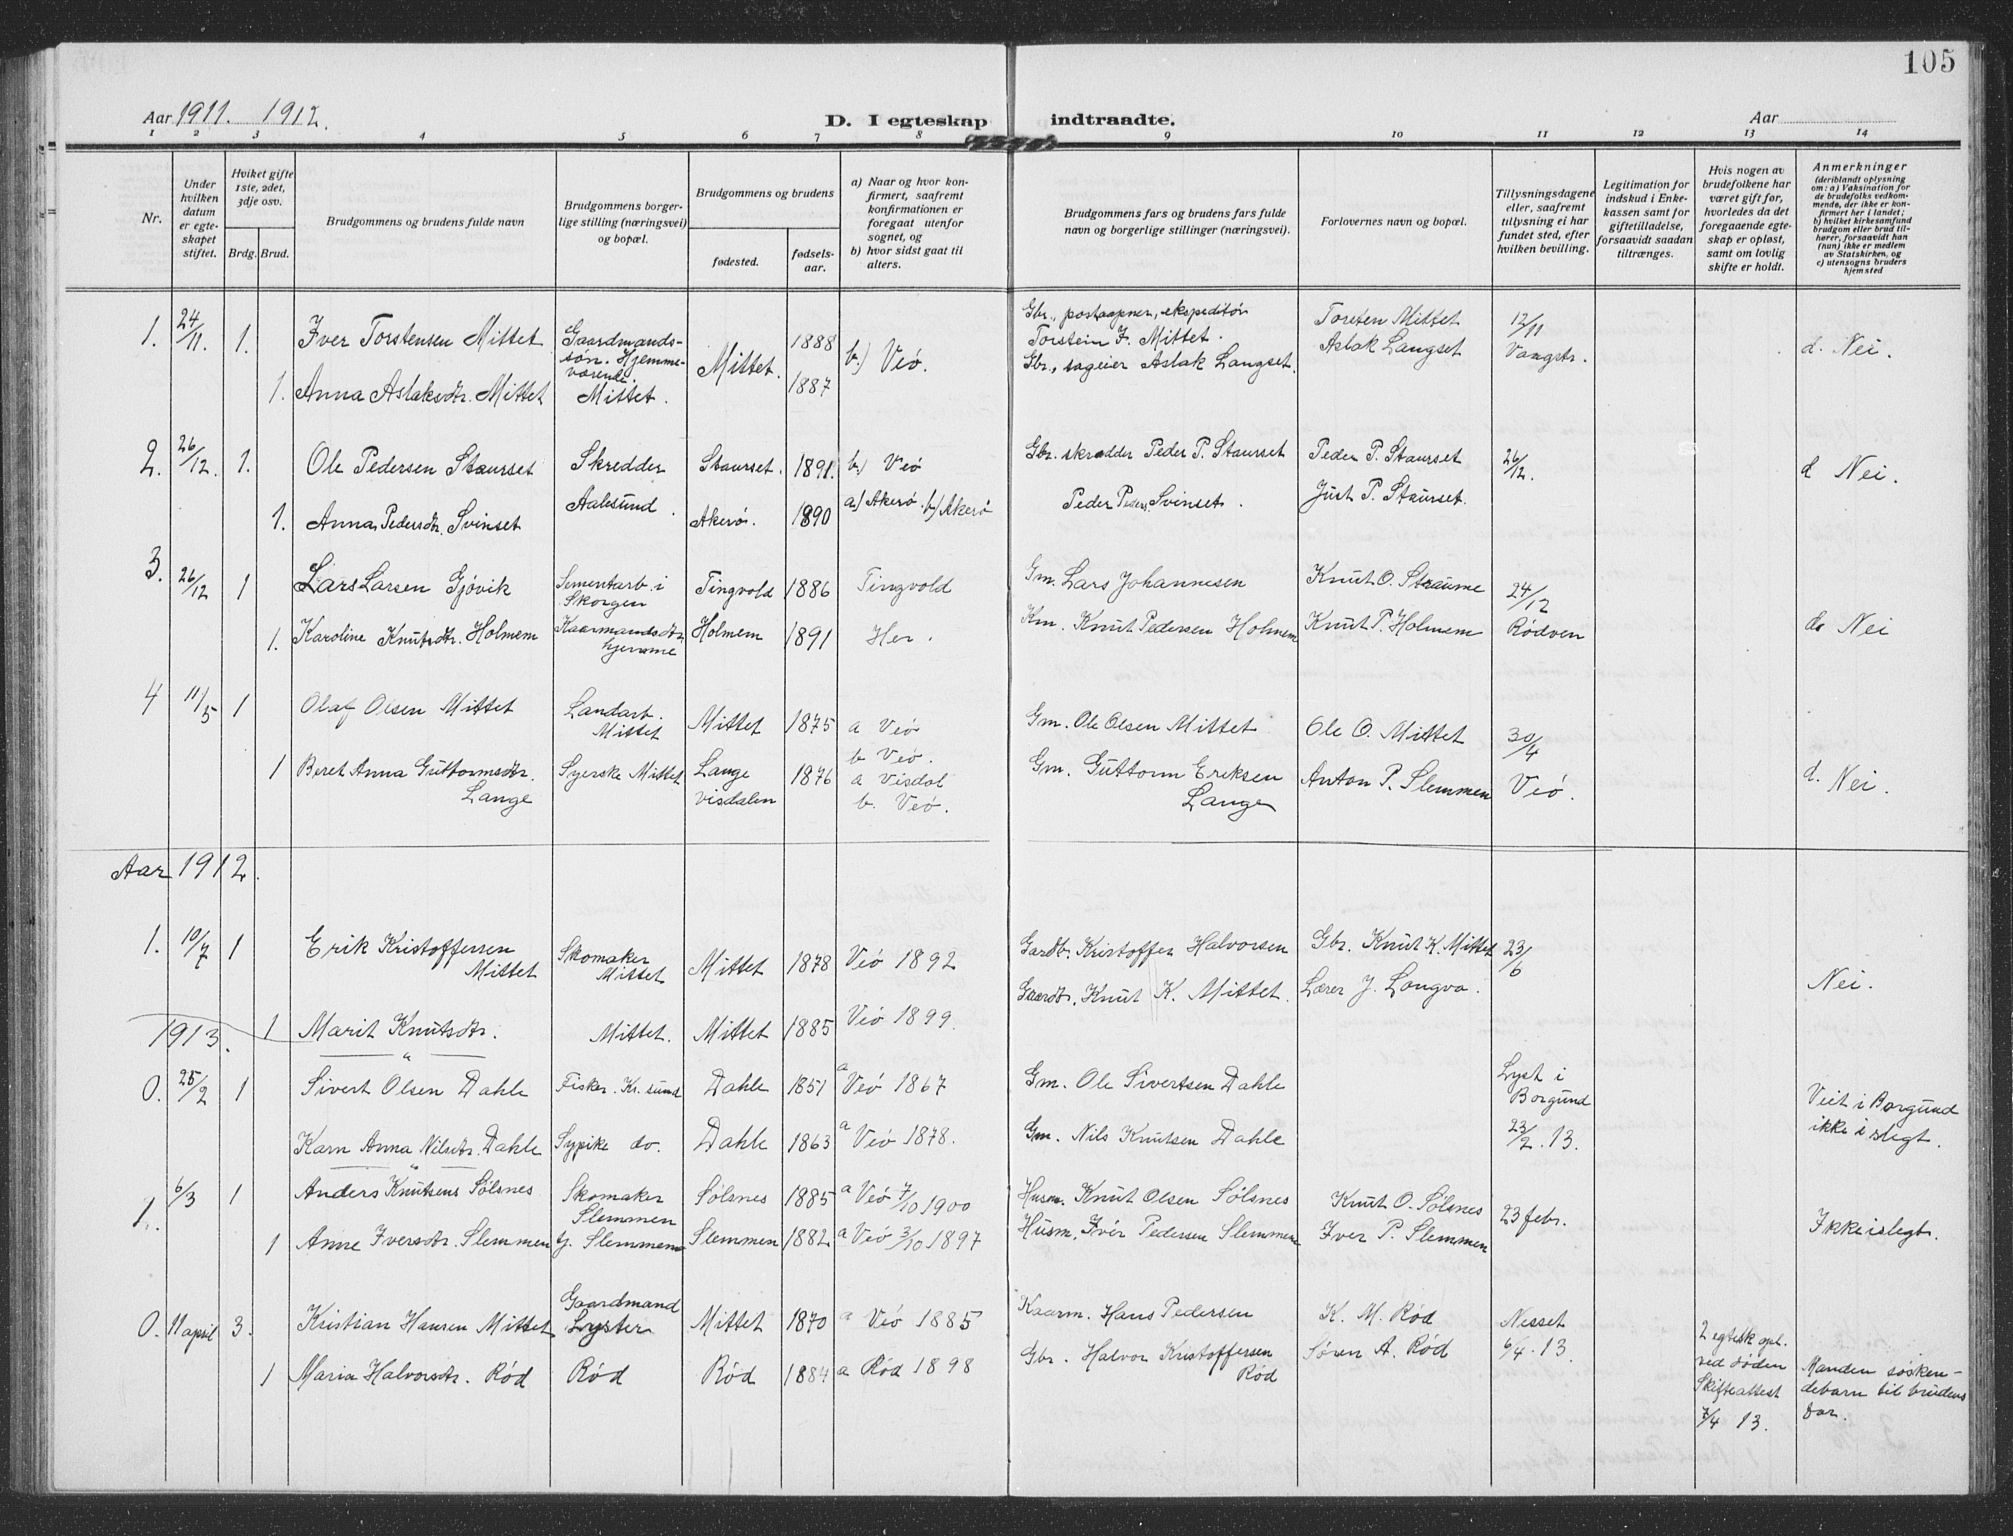 105
Aar 1911. 1912.
D. I egteskap indtraadte.
Aar
1 2 3 4 5 6 7 8 9 10 11 12 13 14
Nr.
Under hvilken datum er egteskapet stiftet.
Hviket gifte 1ste, 2det, 3dje osv.
Brdg. Brud.
Brudgommens og brudens fulde navn
Brudgommens borgerlige stilling (næringsvei) og bopæl.
Brudgommens og brudens
fødested.
fødselsaar.
a) Naar og hvor konfirmert, saafremt konfirmationen er foregaat utenfor sognet, og
b) hvor sidst gaat til alters.
Brudgommens fars og brudens fars fulde navn og borgerlige stillinger (næringsvei).
Forlovernes navn og bopæl.
Tillysningsdagene eller, saafremt tillysning ei har fundet sted, efter hvilken bevilling.
Legitimation for indskud i Enkekassen samt for giftetilladelse, forsaavidt saadan tiltrænges.
Hvis nogen av brudefolkene har været gift før, hvorledes da det foregaaende egteskap er opløst, samt om lovlig skifte er holdt.
Anmerkninger
(deriblandt oplysning om: a) Vaksination for de brudefolks vedkommende, der ikke er konfirmert her i landet; b) hvilket kirkesamfund brudgom eller brud tilhører, forsaavidt han (hun) ikke er medlem av Statskirken, og c) utensogns bruders hjemsted
1. 24/11. 1. Iver Torstensen Mittet Gaardmandssøn. Hjemmeværende. Mittet. 1888 b.) Veö. Gbr., postaapner, ekspeditör Torstein I. Mittet. Torsten Mittet 12/11 Vangstr. d. Nei.
1. Anna Aslaksdtr. Mittet Mittet. 1887 Gbr., sageier Aslak Langset. Aslak Langset
2. 26/12. 1. Ole Pedersen Staurset Skredder Staurset. 1891. b) Veö Gbr. skrædder Peder P. Staurset Peder P. Staurset 26/12. d Nei.
1. Anna Pedersdtr. Svinset Aalesund. Akerö. 1890 a) Akerö. b) Akerö Peder Peders. Svinset. Just P. Staurset.
3. 26/12 1 Lars Larsen Gjövik Sementarb. i Skorgen Tingvold 1886 Tingvold Gm. Lars Johannesen Knut O. Straume 24/12 Rödven do Nei
1. Karoline Knutsdtr. Holmem Kaarmandsdtr. hjemme Holmem 1891 Her. Km. Knut Pedersen Holmem Knut P. Holmem
4 11/5 1 Olaf Olsen Mittet Landarb. Mittet Mittet 1875 a Veö b Veö. Gm. Ole Olsen Mittet Ole O. Mittet 30/4 Veö. d. Nei.
1 Beret Anna Guttormsdtr. Lange Syerske Mittet Lange Visdalen 1876 a Visdal b. Veö. Gm. Guttorm Eriksen Lange Anton P. Slemmen
Aar 1912.
1. 10/7 1 Erik Kristoffersen Mittet Skomaker Mittet Mittet 1878 Veö 1892 Gardbr. Kristoffer Halvorsen Gbr. Knut K. Mittet 23/6 Nei.
1 Marit Knutsdtr. Mittet. Mittet 1885 Veö 1899. Gaardbr. Knut K. Mittet. Lærer J. Longva.
1913.
0. 25/2 1 Sivert Olsen Dahle Fisker. Kr.sund Dahle 1851 a Veö 1867 Gm. Ole Sivertsen Dahle Lyst i Borgund 23/2. 13. Viet i Borgund ikke i slegt.
Karn Anna Nilsdtr. Dahle Sypike do. Dahle 1863 a Veö 1878. Gm. Nils Knutsen Dahle
1. 6/3 1 Anders Knutsens Sölsnes Skomaker Slemmen Sölsnes 1885 a Veö 7/10 1900 Husm. Knut Olsen Sölsnes Knut O. Sölsnes 23 febr. Ikke i slegt.
1 Anne Iversdtr. Slemmen Slemmem Slemmen 1882 a Veö 3/10 1897 Husm. Iver Pedersen Slemmem Iver P. Slemmen
0. 11 april 3. Kristian Hansen Mittet Gaardmand Lyster Mittet 1870 a Veö 1885 Kaarm. Hans Pedersen K. M. Röd Nesset 6/4. 13. 2 egtesk opl. ved döden Skifteattest 7/4 13. Manden söskendebarn til brudens far.
1 Maria Halvorsdtr. Röd Röd Röd 1884 a Röd 1898 Gbr. Halvor Kristoffersen Röd Sören A. Röd